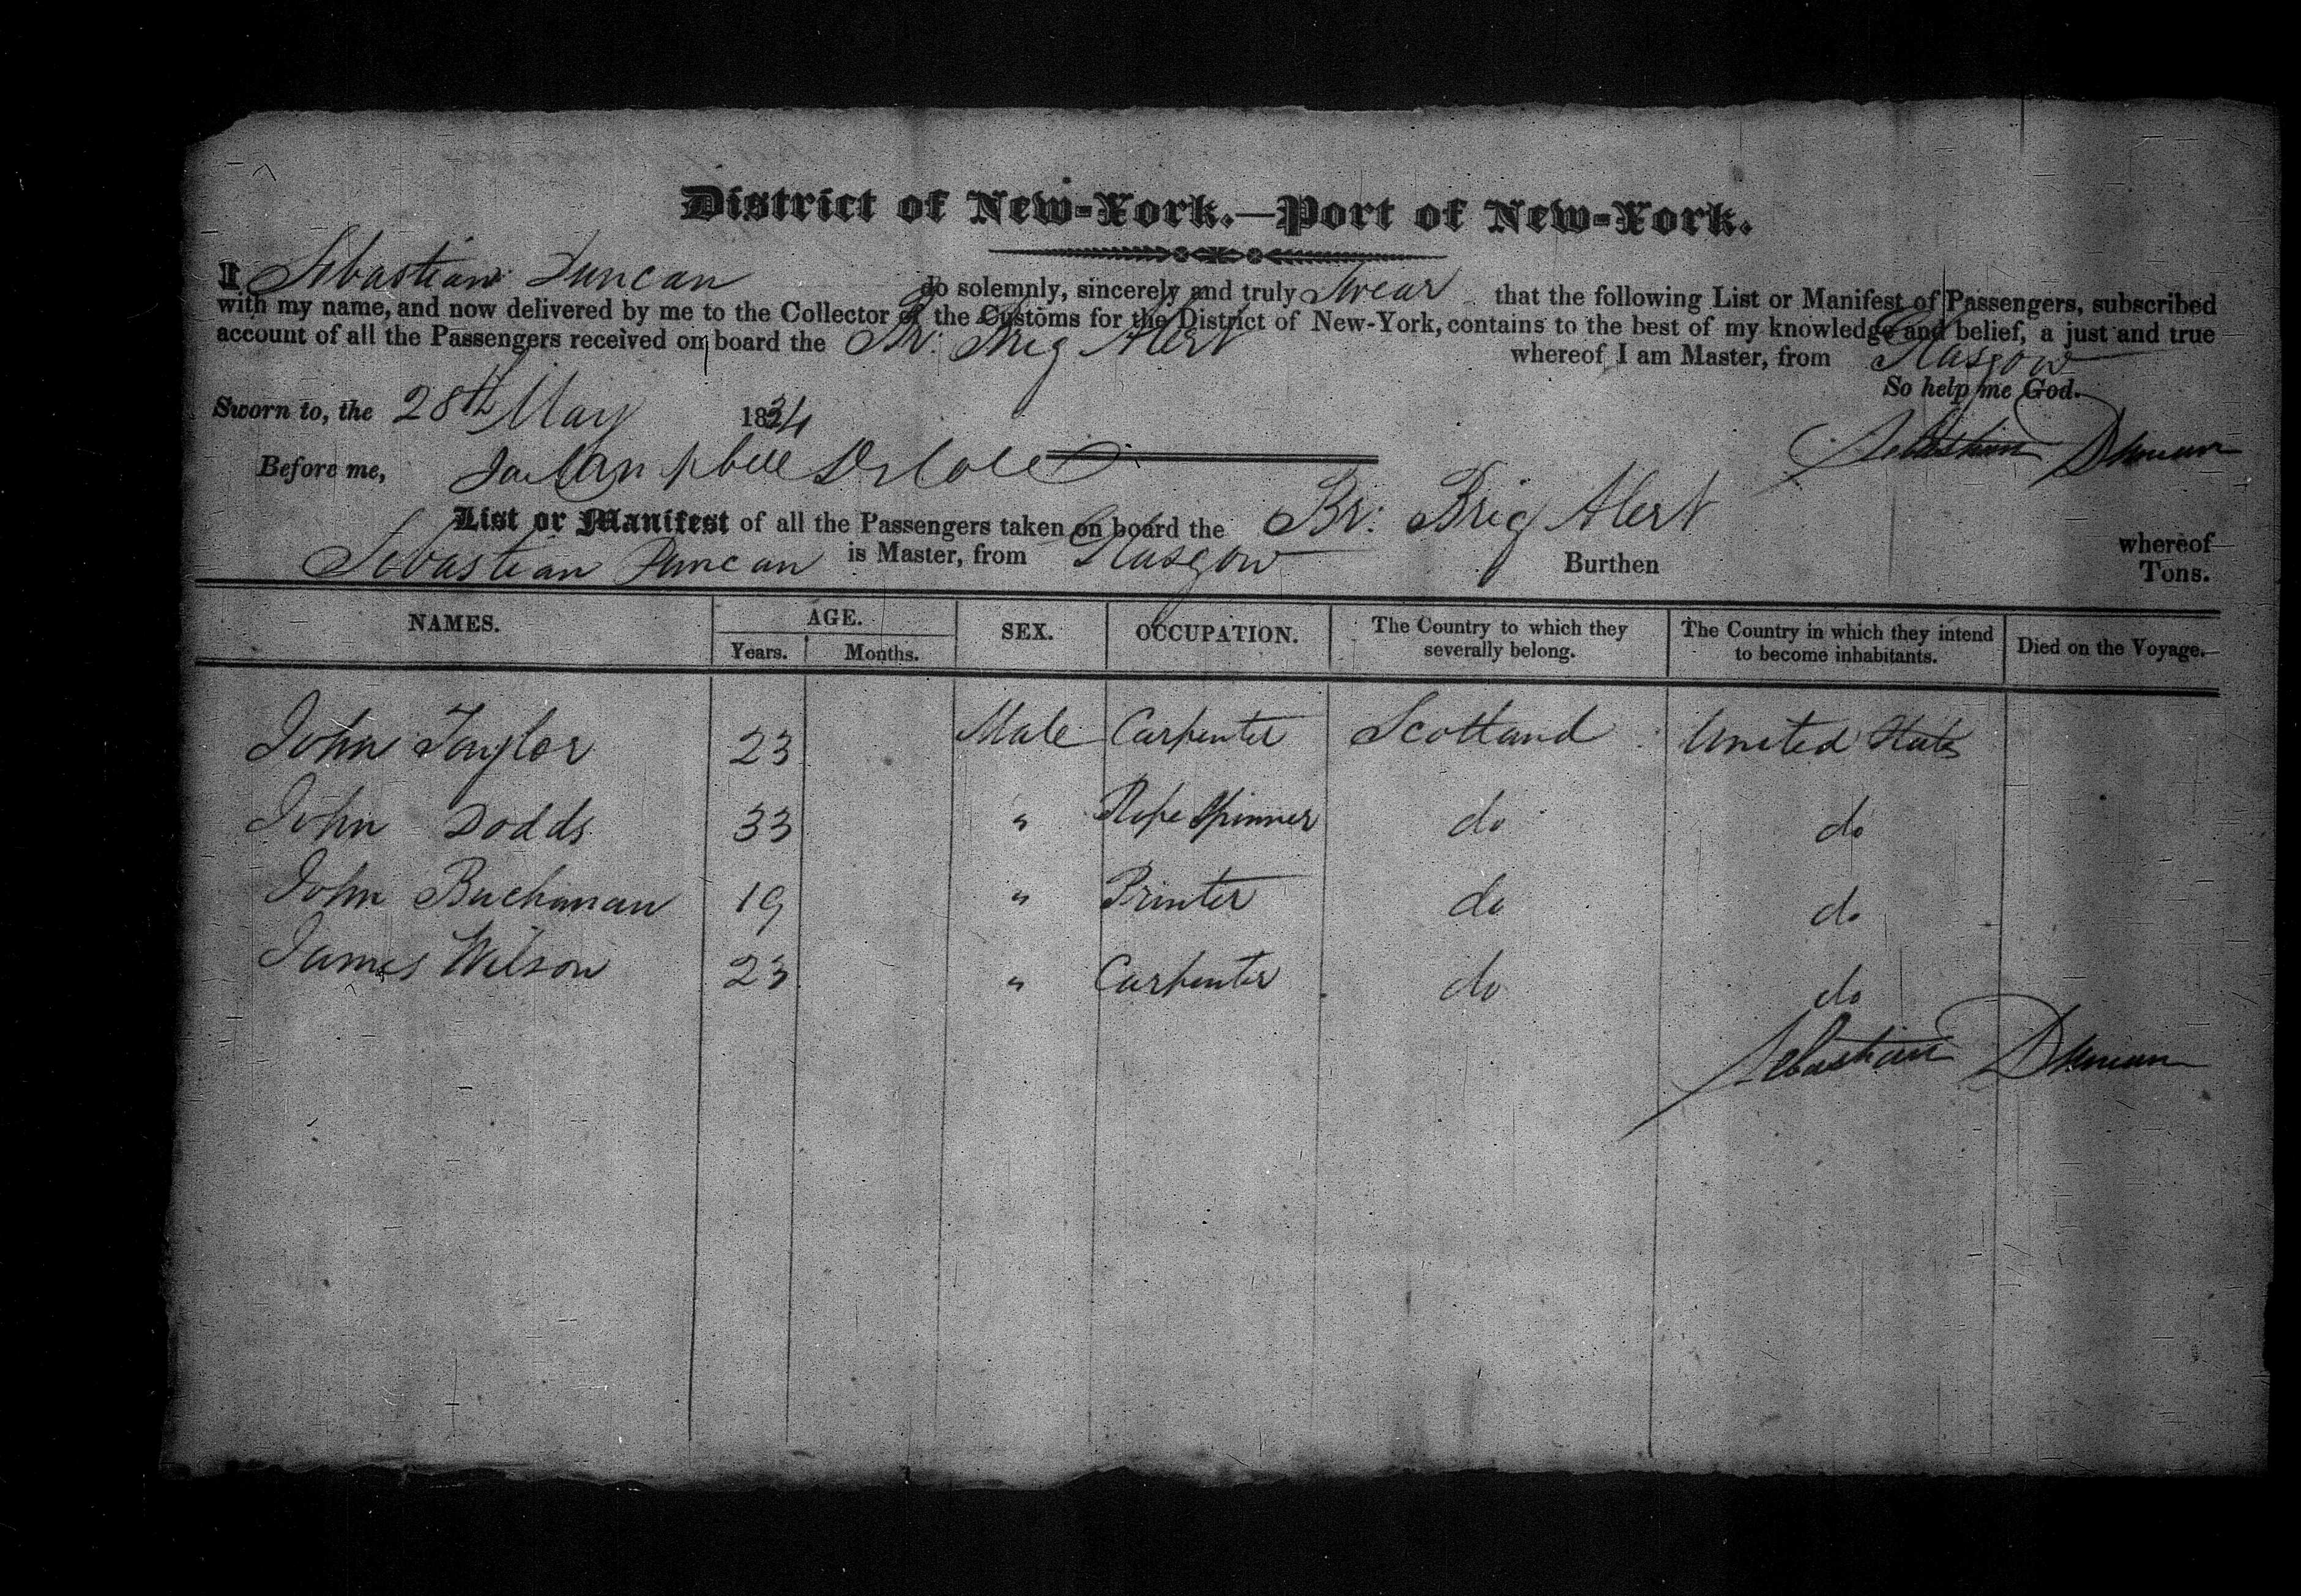 District of New-York.—Port of New-York.
I Sebastian Duncan do solemnly, sincerely and truly Swear that the following List or Manifest of Passengers, subscribed
with my name, and now delivered by me to the Collector of the Customs for the District of New-York, contains to the best of my knowledge and belief, a just and true
account of all the Passengers received on board the Br: Brig Alert whereof I am Master, from Glasgow
So help me God.
Sworn to, the 28th May 1834
Sebastian Duncan
Before me,
List or Manifest of all the Passengers taken on board the Br: Brig Alert whereof
Sebastian Duncan is Master, from Glasgow Burthen Tons.
NAMES. AGE. SEX. OCCUPATION. The Country to which they severally belong. The Country in which they intend to become inhabitants. Died on the Voyage.
Years. Months.
John Taylor 23 Male Carpenter Scotland United States
John Dodds 33 " Rope Spinner do do
John Buchanan 19 " Printer do do
James Wilson 23 " Carpenter do do
Sebastian Duncan